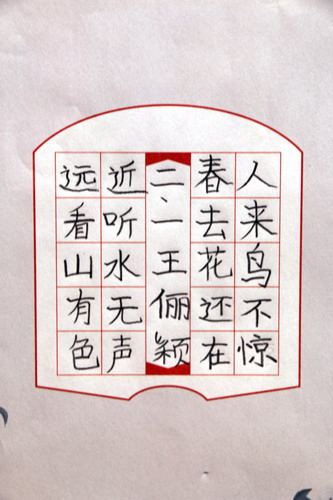 远看山有色
近听水无声
二、一王俪颖
春去花还在
人来鸟不惊